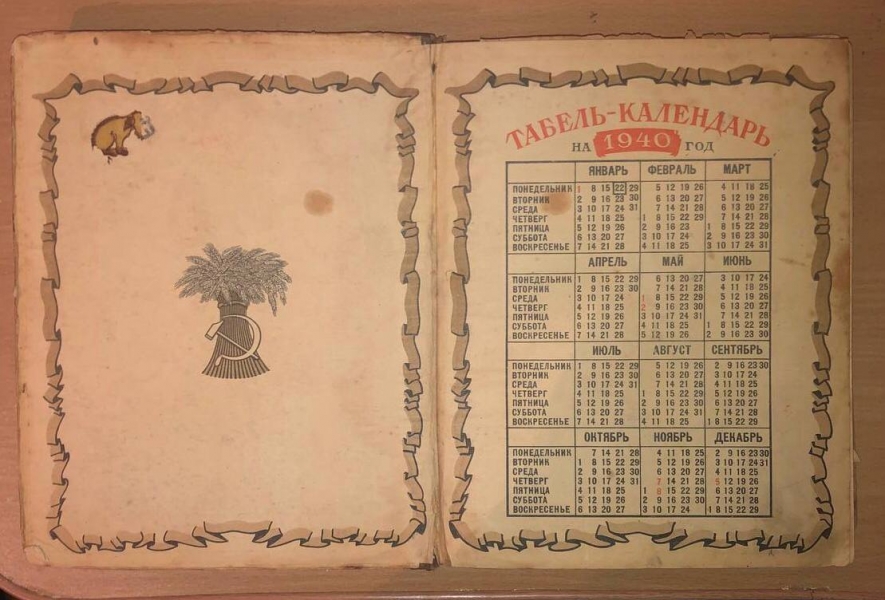 ТАБЕЛЬ-КАЛЕНДАРЬ
НА 1940 ГОД
ЯНВАРЬ ФЕВРАЛЬ МАРТ
ПОНЕДЕЛЬНИК 1 8 15 22 29 5 12 19 26 4 11 18 25
ВТОРНИК 2 9 16 23 30 6 13 20 27 5 12 19 26
СРЕДА 3 10 17 24 31 7 14 21 28 6 13 20 27
ЧЕТВЕРГ 4 11 18 25 1 8 15 22 29 7 14 21 28
ПЯТНИЦА 5 12 19 26 2 9 16 23 1 8 15 22 29
СУББОТА 6 13 20 27 3 10 17 24 2 9 16 23 30
ВОСКРЕСЕНЬЕ 7 14 21 28 4 11 18 25 3 10 17 24 31
АПРЕЛЬ МАЙ ИЮНЬ
ПОНЕДЕЛЬНИК 1 8 15 22 29 6 13 20 27 3 10 17 24
ВТОРНИК 2 9 16 23 30 7 14 21 28 4 11 18 25
СРЕДА 3 10 17 24 1 8 15 22 29 5 12 19 26
ЧЕТВЕРГ 4 11 18 25 2 9 16 23 30 6 13 20 27
ПЯТНИЦА 5 12 19 26 3 10 17 24 31 7 14 21 28
СУББОТА 6 13 20 27 4 11 18 25 1 8 15 22 29
ВОСКРЕСЕНЬЕ 7 14 21 28 5 12 19 26 2 9 16 23 30
ИЮЛЬ АВГУСТ СЕНТЯБРЬ
ПОНЕДЕЛЬНИК 1 8 15 22 29 5 12 19 26 2 9 16 23 30
ВТОРНИК 2 9 16 23 30 6 13 20 27 3 10 17 24
СРЕДА 3 10 17 24 31 7 14 21 28 4 11 18 25
ЧЕТВЕРГ 4 11 18 25 1 8 15 22 29 5 12 19 26
ПЯТНИЦА 5 12 19 26 2 9 16 23 30 6 13 20 27
СУББОТА 6 13 20 27 3 10 17 24 31 7 14 21 28
ВОСКРЕСЕНЬЕ 7 14 21 28 4 11 18 25 1 8 15 22 29
ОКТЯБРЬ НОЯБРЬ ДЕКАБРЬ
ПОНЕДЕЛЬНИК 7 14 21 28 4 11 18 25 2 9 16 23 30
ВТОРНИК 1 8 15 22 29 5 12 19 26 3 10 17 24 31
СРЕДА 2 9 16 23 30 6 13 20 27 4 11 18 25
ЧЕТВЕРГ 3 10 17 24 31 7 14 21 28 5 12 19 26
ПЯТНИЦА 4 11 18 25 1 8 15 22 29 6 13 20 27
СУББОТА 5 12 19 26 2 9 16 23 30 7 14 21 28
ВОСКРЕСЕНЬЕ 6 13 20 27 3 10 17 24 1 8 15 22 29